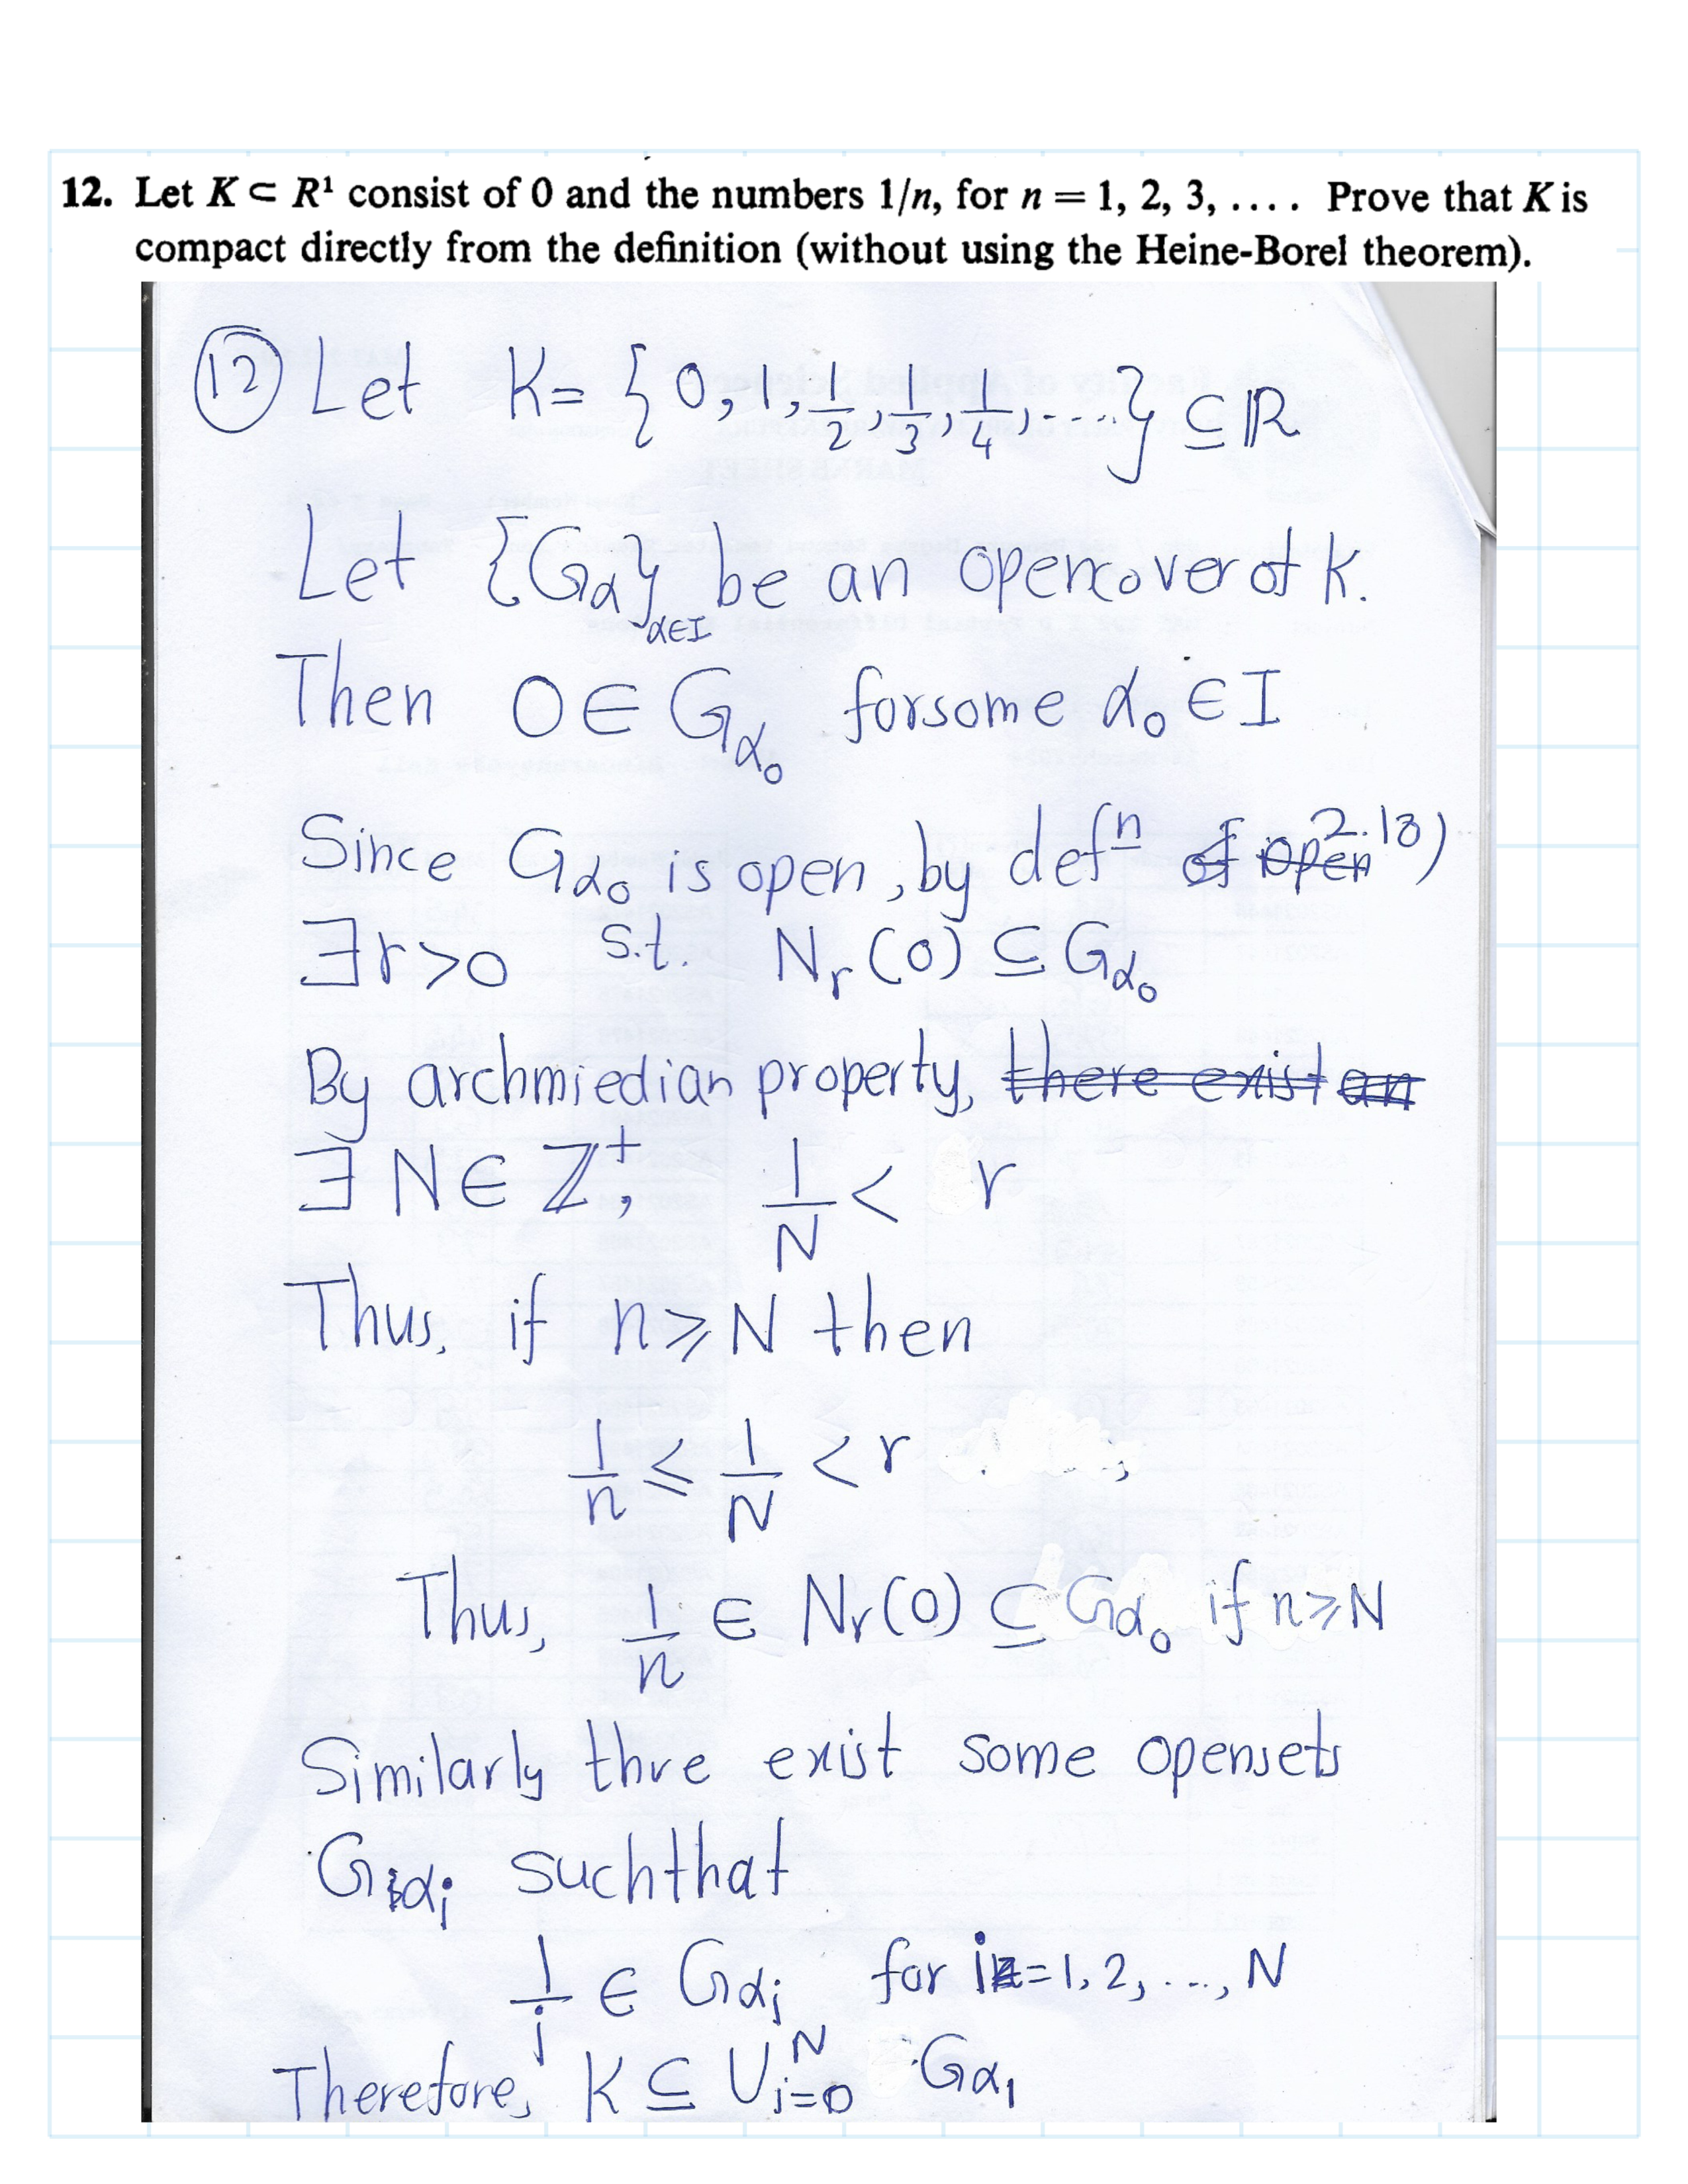 12. Let K ⊂ R¹ consist of 0 and the numbers 1/n, for n = 1, 2, 3, .... Prove that K is
compact directly from the definition (without using the Heine-Borel theorem).
(12) Let K = {0, 1, 1/2, 1/3, 1/4, ....} ⊆ ℝ
Let {Gα}α∈I be an opencover of K.
Then 0 ∈ Gα₀ forsome α₀ ∈ I
Since Gα₀ is open, by defⁿ of open 2.18)
∃r>0 s.t. Nr(0) ⊆ Gα₀
By archmiedian property, there exist an
∃ N ∈ ℤ⁺, 1/N < r
Thus, if n ⩾ N then
1/n ⩽ 1/N < r
Thus, 1/n ∈ Nr(0) ⊆ Gα₀ if n ⩾ N
Similarly thre exist some opensets
Gαi suchthat
1/i ∈ Gαi for i = 1, 2, ..., N
Therefore, K ⊆ ∪ᵢ₌₀ᴺ Gαi